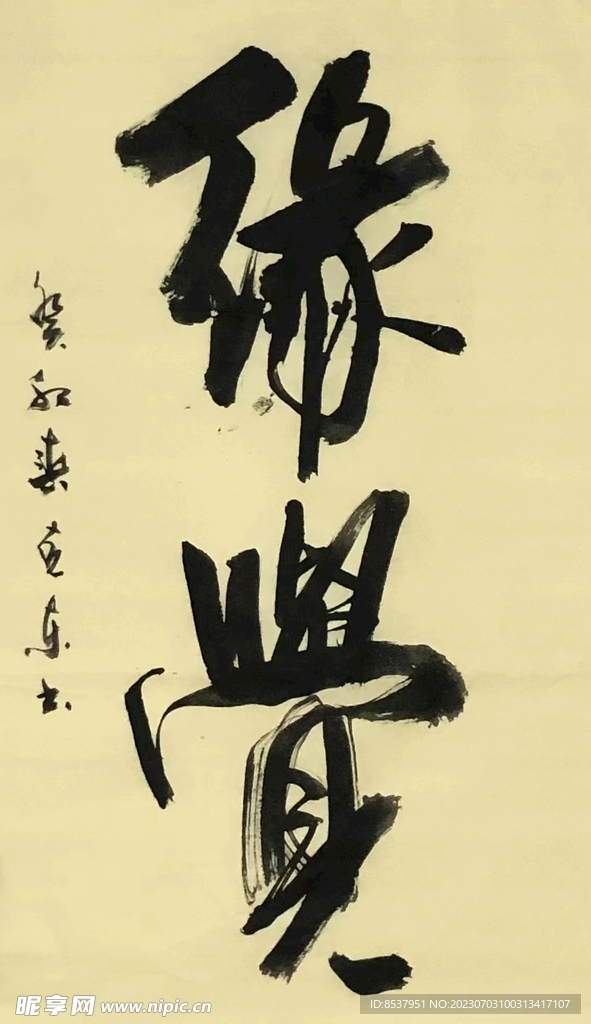 緣覺
癸卯春东书
昵享网 www.nipic.cn
ID:8537951 NO:20230703100313417107